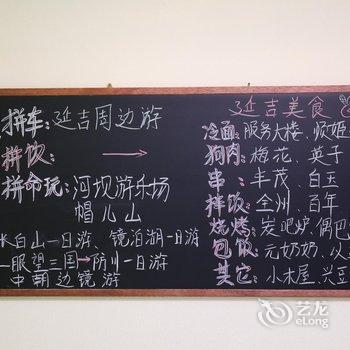 拼车:延吉周边游
拼饮: →
拼命玩:河坝游乐场
帽儿山
长白山一日游、镜泊湖一日游
一眼望三国→防川一日游
中朝边镜游
延吉美食
冷面:服务大楼、顺姬
狗肉:梅花、英子
串:丰茂、白玉
拌饭:全州、百年
烧烤:炭吧炉、偶巴
包饭:元奶奶、
其它:小木屋、兴豆
艺龙
eLong